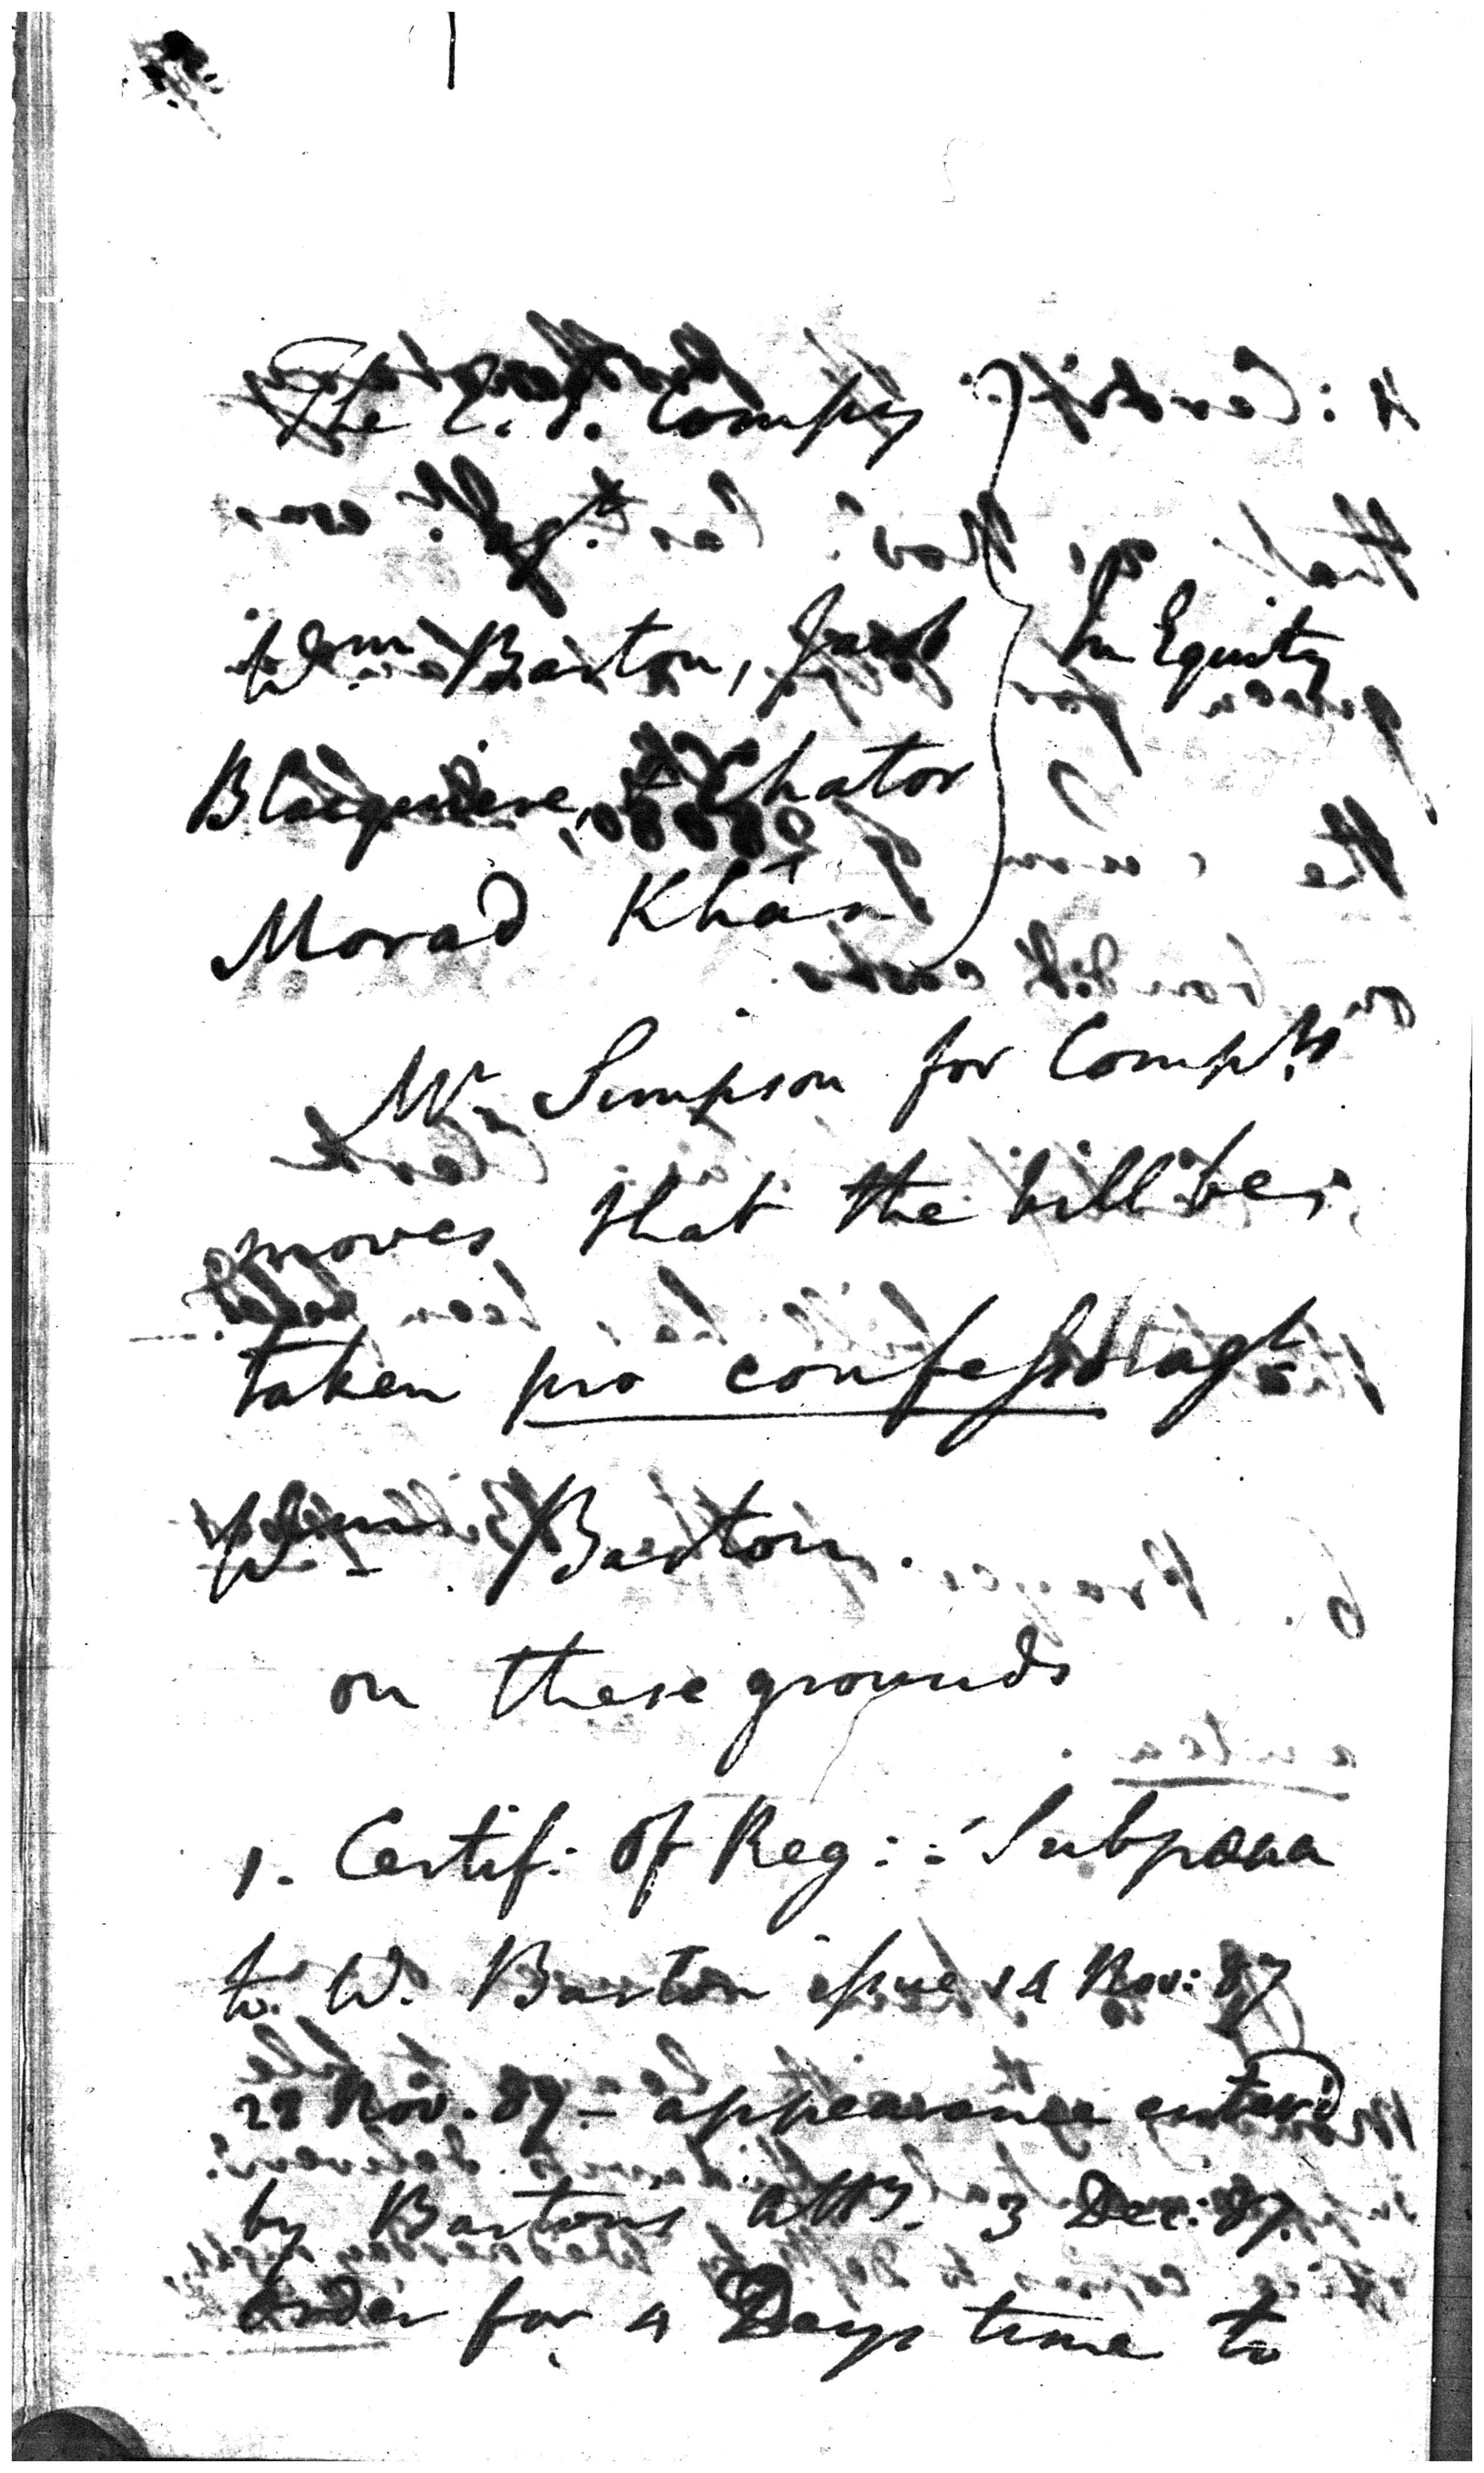 The E. I. Compy
agt.
Wm. Barton, Jacob } In Equity
Blaquiere, & Chator
Morad Khân
Mr. Simpson for Complts
moves that the bill be
taken pro confesso agt.
Wm. Barton.
on these grounds
1. Certif: of Reg:: Subpœna
to W. Barton issue 14 Nov: 87
28 Nov. 87 - appearance enter'd
by Bartons Atty. 3 Dec: 87.
Order for 4 Days time to